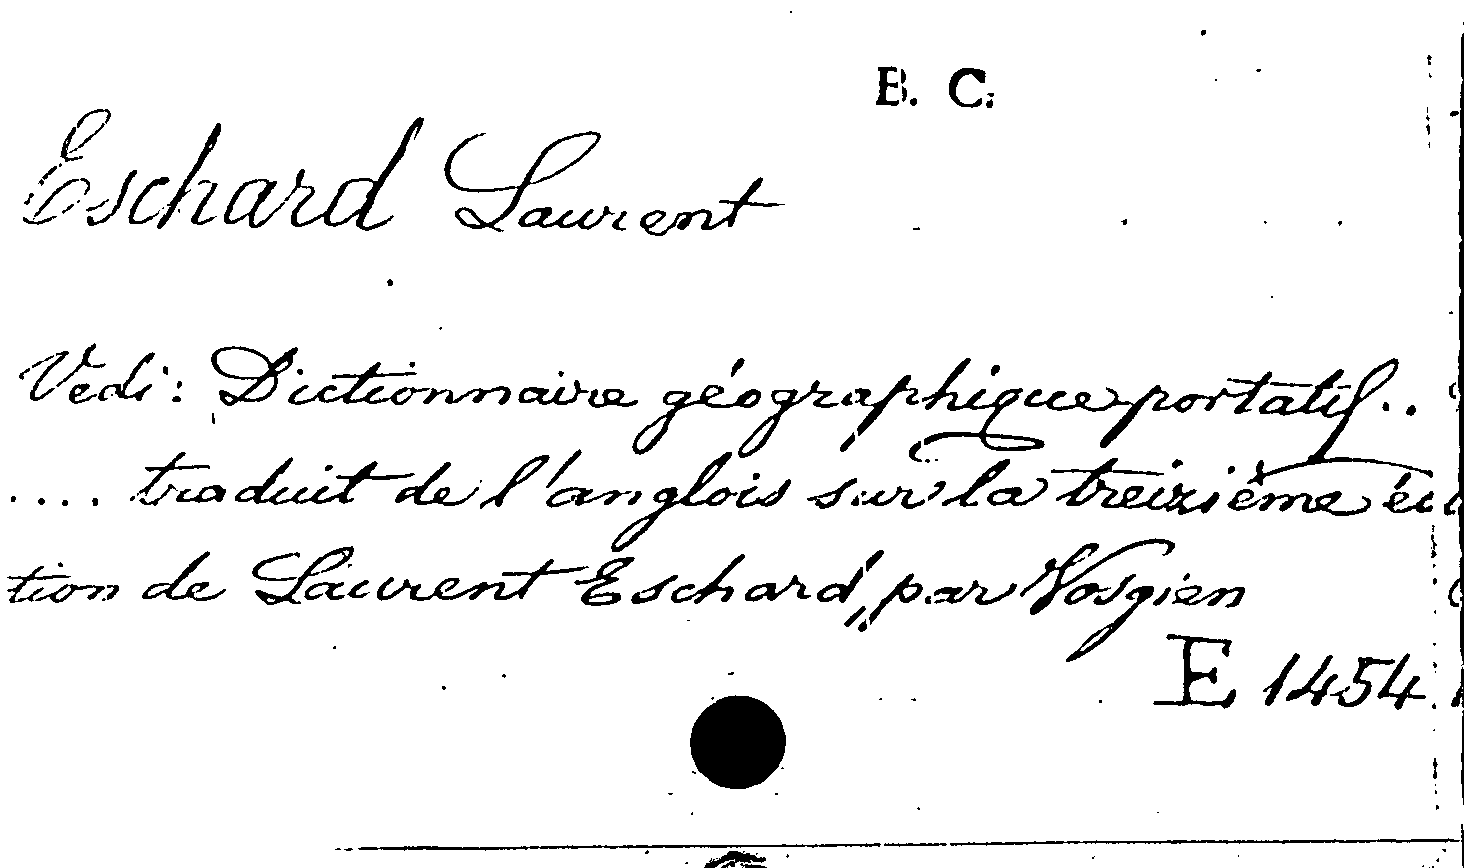 B. C.
Eschard Laurent
Vedi: Dictionnaire géographique portatif..
.... traduit de l'anglois sur la treizième édi
tion de Laurent Eschard,, par Vosgien
E 1454